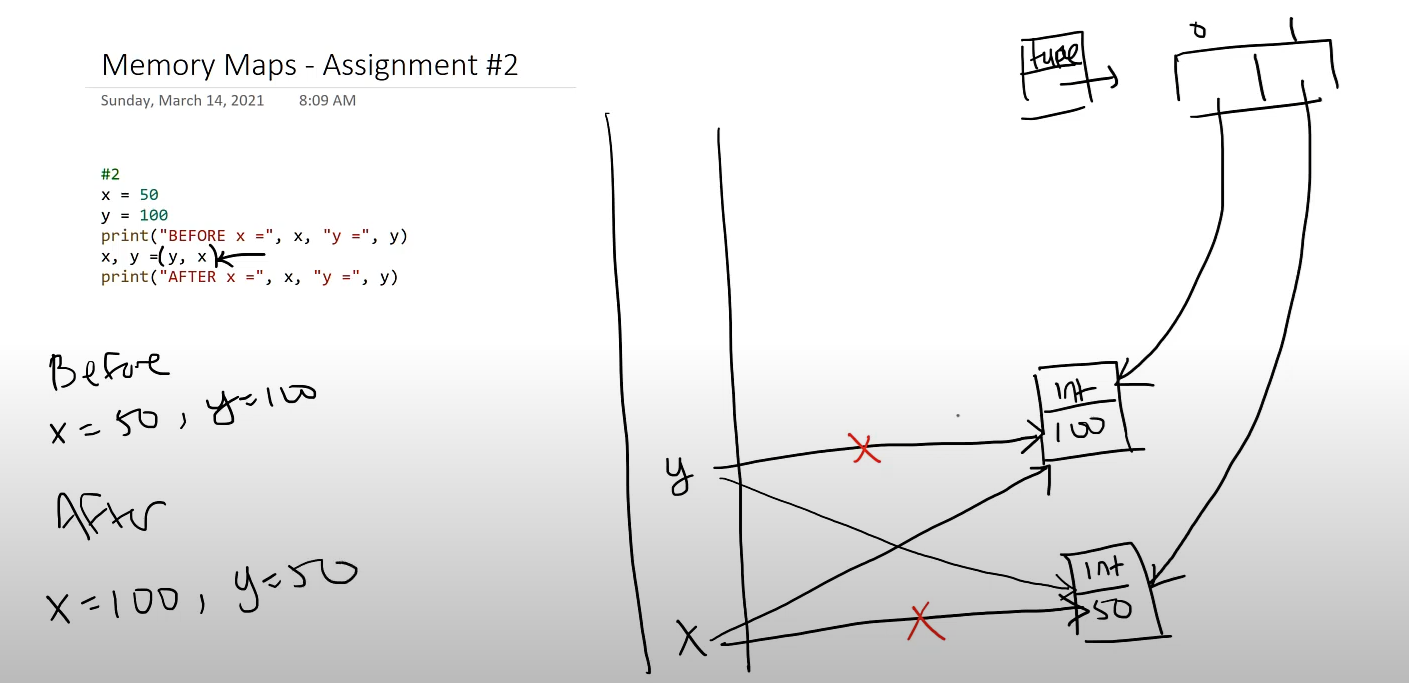 Memory Maps - Assignment #2
Sunday, March 14, 2021 8:09 AM
#2
x = 50
y = 100
print("BEFORE x =", x, "y =", y)
x, y =(y, x)
print("AFTER x =", x, "y =", y)
Before
x = 50, y=100
After
x=100, y=50
type
0 1
int
100
y
int
50
x